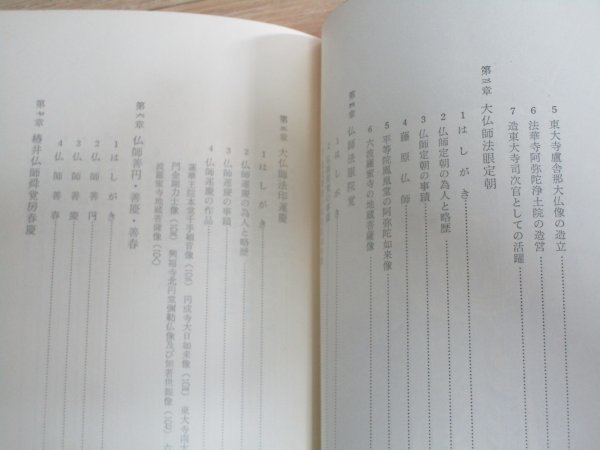 5 東大寺盧舎那大仏像の造立
6 法華寺阿弥陀浄土院の造営
7 造東大寺司次官としての活躍
第三章 大仏師法眼定朝
1 はしがき
2 仏師定朝の為人と略歴
3 仏師定朝の事蹟
4 藤原仏師
5 平等院鳳凰堂の阿弥陀如来像
6 六波羅蜜寺の地蔵菩薩像
第四章 仏師法眼院覚
1 はしがき
第五章 大仏師法印運慶
1 はしがき
2 仏師運慶の為人と略歴
3 仏師運慶の事蹟
4 仏師運慶の作品
蓮華王院本堂千手観音像 円成寺大日如来像 東大寺南大
門金剛力士像 興福寺北円堂弥勒仏像及び無著世親像 六
波羅蜜寺地蔵菩薩像
第六章 仏師善円・善慶・善春
1 はしがき
2 仏師善円
3 仏師善慶
4 仏師善春
第七章 椿井仏師舜覚房春慶